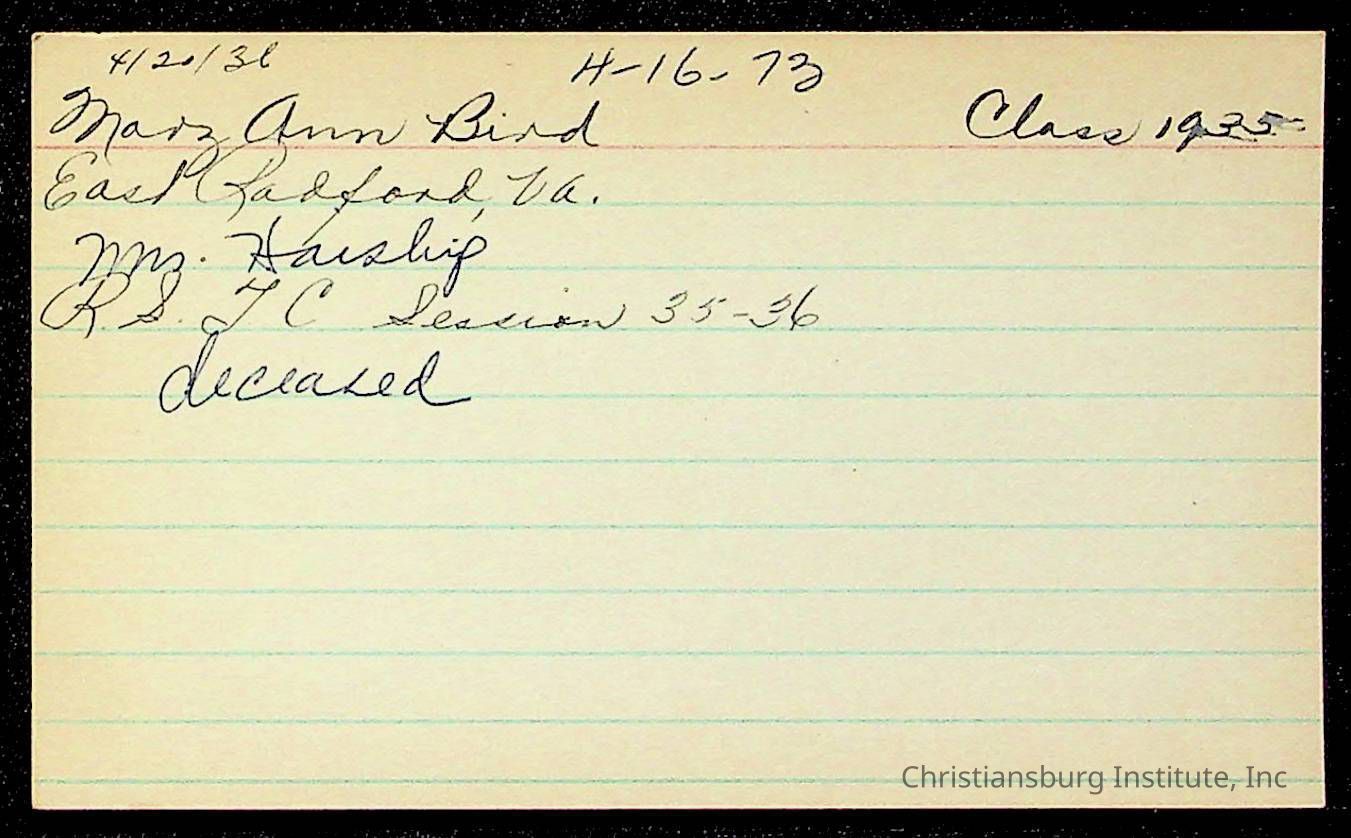 4/20/36 4-16-73
Mary Ann Bird Class 1935
East Radford, Va.
Mrs.
R. S. T C Session 35-36
deceased
Christiansburg Institute, Inc